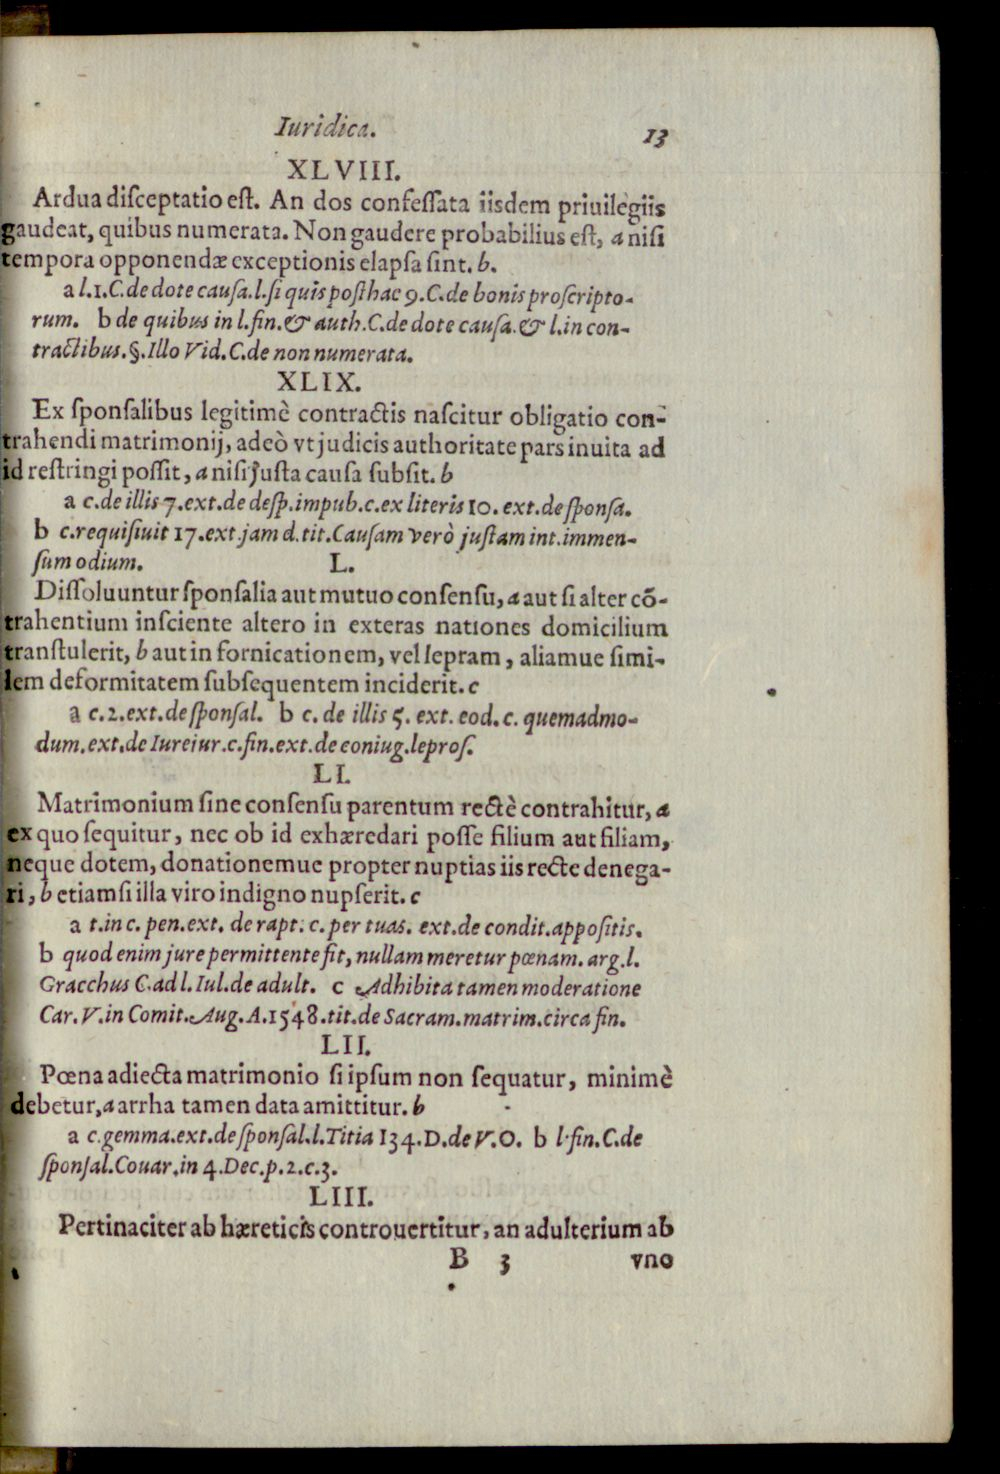 Iuridica. 13
XLVIII.
Ardua disceptatio est. An dos confessata iisdem priuilegiis
gaudeat, quibus numerata. Non gaudere probabilius est, a nisi
tempora opponendæ exceptionis elapsa sint. b.
a l.1.C.de dote causa.l.si quis posthac 9.C.de bonis proscripto-
rum. b de quibus in l.fin.& auth.C.de dote causa.& l.in con-
tractibus.§.Illo Vid.C.de non numerata.
XLIX.
Ex sponsalibus legitimè contractis nascitur obligatio con-
trahendi matrimonij, adeò vt judicis authoritate pars inuita ad
id restringi possit, a nisi justa causa subsit. b
a c.de illis 7.ext.de desp.impub.c.ex literis 10. ext.de sponsa.
b c.requisiuit 17.ext.jam d.tit.Causam verò justam int.immen-
sum odium. L.
Dissoluuntur sponsalia aut mutuo consensu, a aut si alter cō-
trahentium insciente altero in exteras nationes domicilium
transtulerit, b aut in fornicationem, vel lepram, aliamue simi-
lem deformitatem subsequentem inciderit. c
a c.2.ext.de sponsal. b c. de illis 5. ext. eod. c. quemadmo-
dum.ext.de Iureiur.c.fin.ext.de coniug.lepros.
LI.
Matrimonium sine consensu parentum rectè contrahitur, a
ex quo sequitur, nec ob id exhæredari posse filium aut filiam,
neque dotem, donationemue propter nuptias iis recte denega-
ri, b etiamsi illa viro indigno nupserit. c
a t.in c. pen.ext. de rapt. c. per tuas. ext.de condit.appositis.
b quod enim jure permittente fit, nullam meretur pœnam. arg.l.
Gracchus C.ad l. Iul.de adult. c Adhibita tamen moderatione
Car. V.in Comit.Aug.A.1548.tit.de Sacram.matrim.circa fin.
LII.
Pœna adiecta matrimonio si ipsum non sequatur, minimè
debetur, a arrha tamen data amittitur. b
a c.gemma.ext.de sponsal.l.Titia 134.D.de V.O. b l.fin.C.de
sponsal.Couar.in 4.Dec.p.2.c.3.
LIII.
Pertinaciter ab hæreticis controuertitur, an adulterium ab
B 3 vno